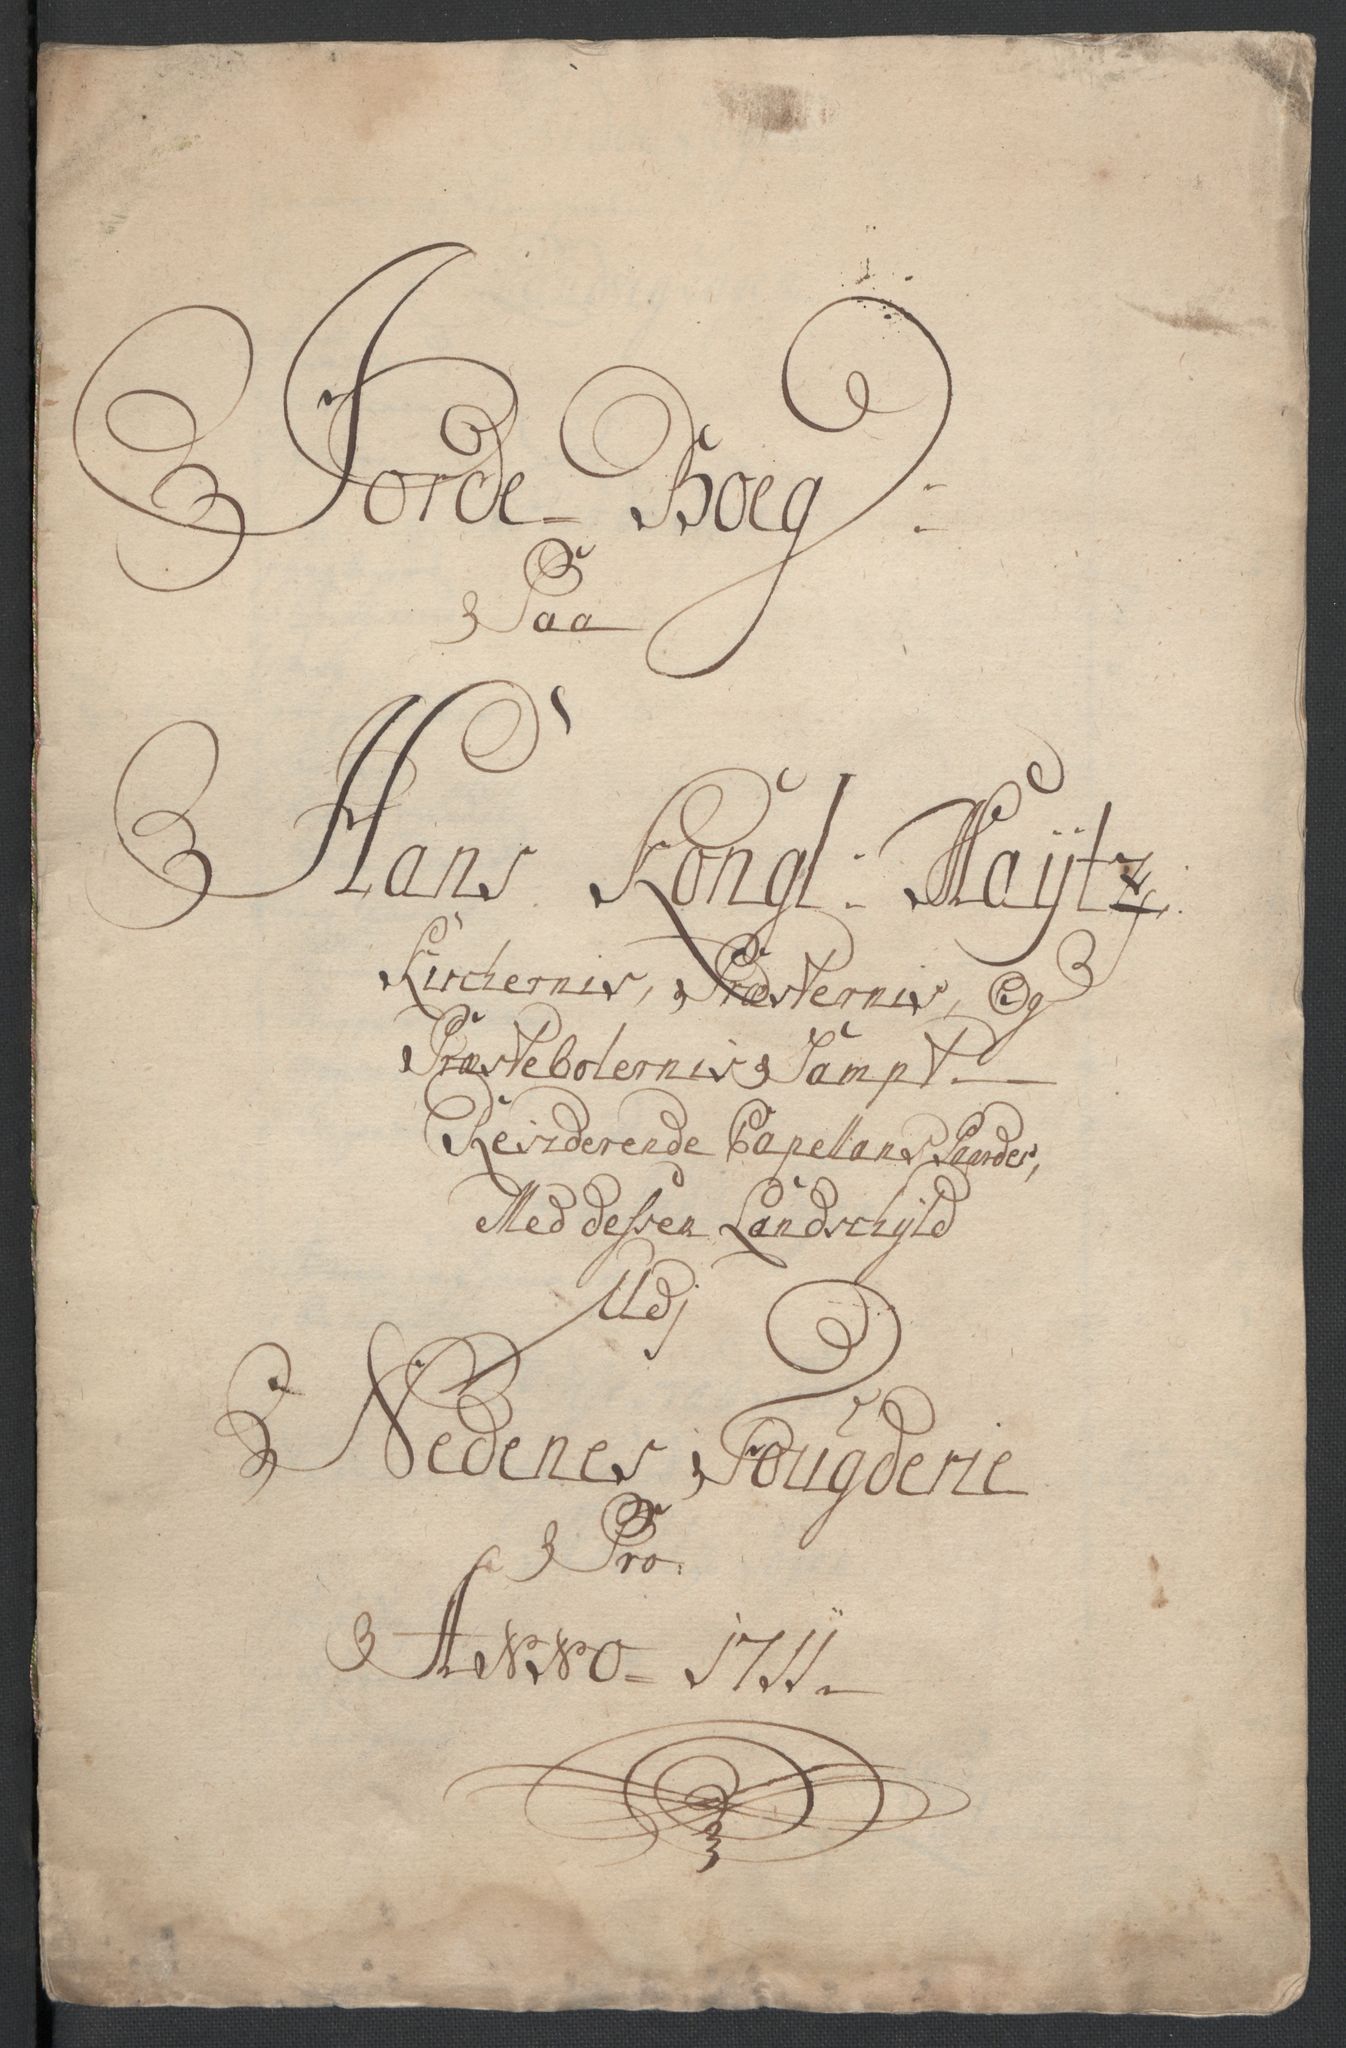 Jorde-Boeg:
Paa
Hans Kongl: Maÿtz
Kirchernis, Præsternis, Og
Præstebolernis Sampt
Reizderende Capellans Gaardes,
Med dessen Landschyld
Udj
Nedenes Fougderie
Pro.
ANNO- 1711.